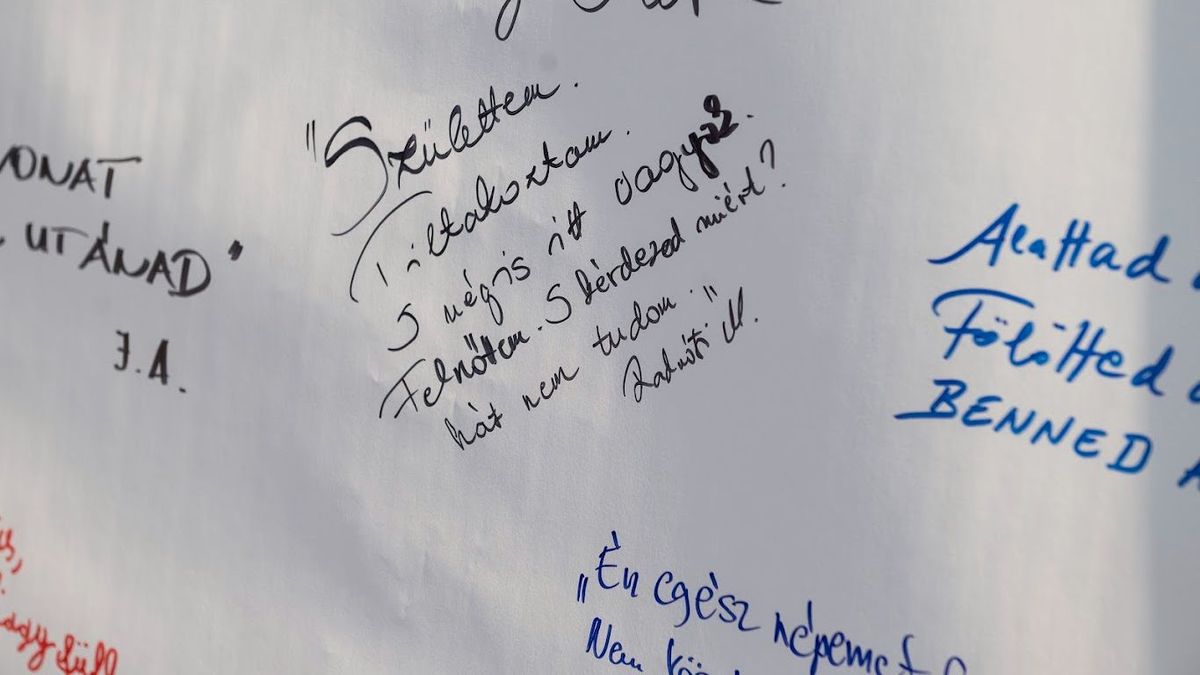 UTÁNAD"
J.A.
"Születtem.
Tiltakoztam.
S mégis itt vagyok.
Felnőttem. S kérdezed miért?
hát nem tudom."
Radnóti M.
Alattad
Fölötted
BENNED
„Én egész népemet
Nem